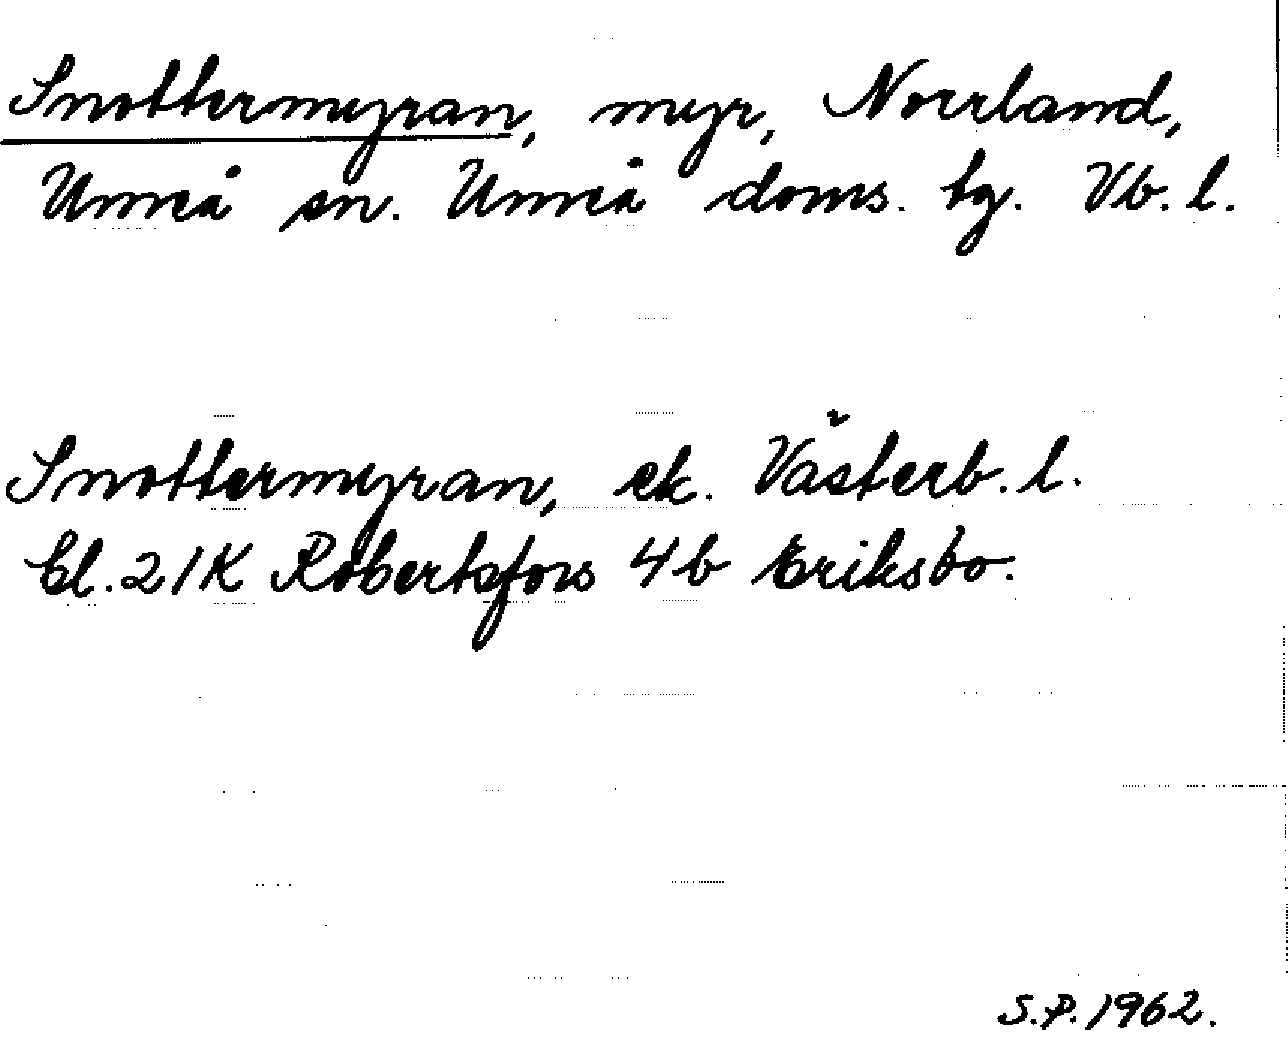 Snottermyran, myr, Norrland,
Umeå sn. Umeå doms. tg. Vb. l.
Snottermyran, ek. Västerb. l.
bl. 21K Robertsfors 4b Eriksbo.
S.P. 1962.